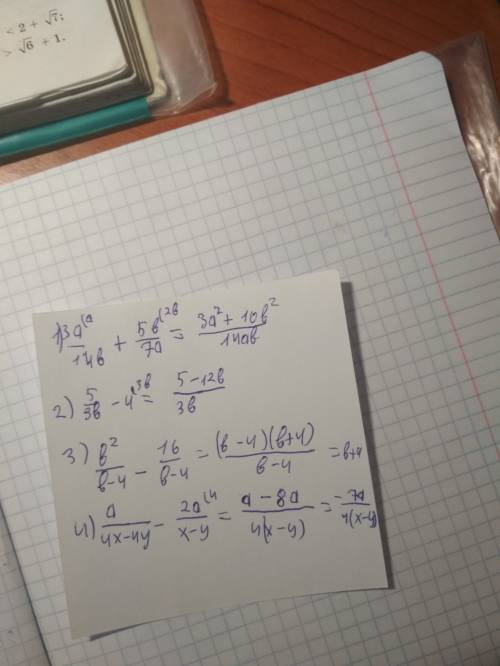 < 2 + √7;
> √6 + 1.
1) 3a⁽ᵃ/14в + 5в⁽²ᵇ/7a = 3a² + 10в²/14aв
2) 5/3в - 4⁽³ᵇ = 5 - 12в/3в
3) в²/в-4 - 16/в-4 = (в-4)(в+4)/в-4 = в+4
4) a/4x-4y - 2a⁽⁴/x-y = a - 8a/4(x-y) = -7a/4(x-y)